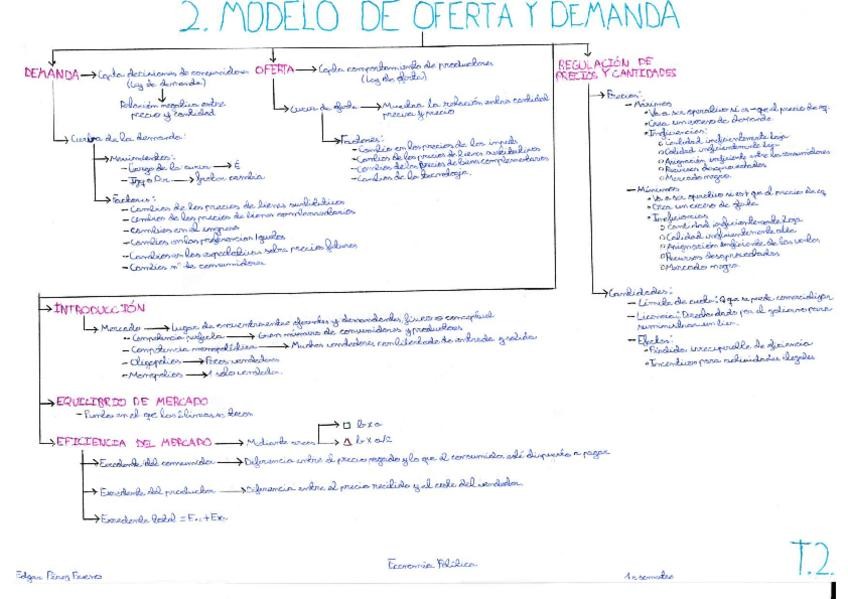 2. MODELO DE OFERTA Y DEMANDA
DEMANDA → Capta decisiones de consumidores
(Ley de demanda)
Relación negativa entre
precio y cantidad
Curva de la demanda:
Movimientos:
- Largo de la curva →
→ Factores:
- Cambios de los precios de bienes sustitutivos
- Cambios de los precios de bienes complementarios
- Cambios en el ingreso
- Cambios en las preferencias/gustos
- Cambios en las expectativas sobre precios futuros
- Cambios nº de consumidores
OFERTA → Capta comportamiento de productores
(Ley de oferta)
Curva de oferta → Muestra la relación entre cantidad
y precio
→ Factores:
- Cambio en los precios de los
- Cambios de los precios de bienes sustitutivos
- Cambios de los precios de bienes complementarios
- Cambios de la tecnología.
REGULACIÓN DE
PRECIOS Y CANTIDADES
Precios:
- Máximos
• Va a ser operativo si es - que el precio de eq.
• Crea un exceso de demanda
• Ineficiencias:
Cantidad ineficientemente baja
Calidad ineficientemente
Asignación ineficiente entre los consumidores
Recursos desaprovechados
Mercado negro
- Mínimos
• Va a ser operativo si es + que el precio de eq
• Crea un exceso de oferta
• Ineficiencias
Cantidad ineficientemente baja
Calidad ineficientemente alta
Asignación ineficiente de las ventas
Recursos desaprovechados
Mercado negro
Cantidades:
- Límite de cuota: Q que se puede comercializar
- Licencia: Derecho dado por el gobierno para
suministrar un bien.
- Efectos:
• Pérdida irrecuperable de eficiencia
• Incentivos para actividades ilegales
INTRODUCCIÓN
Mercado → Lugar de encuentro entre oferentes y demandantes, físico o conceptual
- Competencia perfecta → Gran número de consumidores y productores
- Competencia monopolística → Muchos vendedores con libertad de entrada y salida
- Oligopolios → Pocos vendedores
- Monopolios → 1 solo vendedor.
EQUILIBRIO DE MERCADO
- Punto en el que las líneas se tocan
EFICIENCIA DEL MERCADO → Mediante áreas
□ b x a
△ b x a/2
Excedente del consumidor → Diferencia entre el precio pagado y lo que el consumidor está dispuesto a pagar
Excedente del productor → Diferencia entre el precio recibido y el coste del vendedor
Excedente total =
Economía Política
1er semestre
T.2.